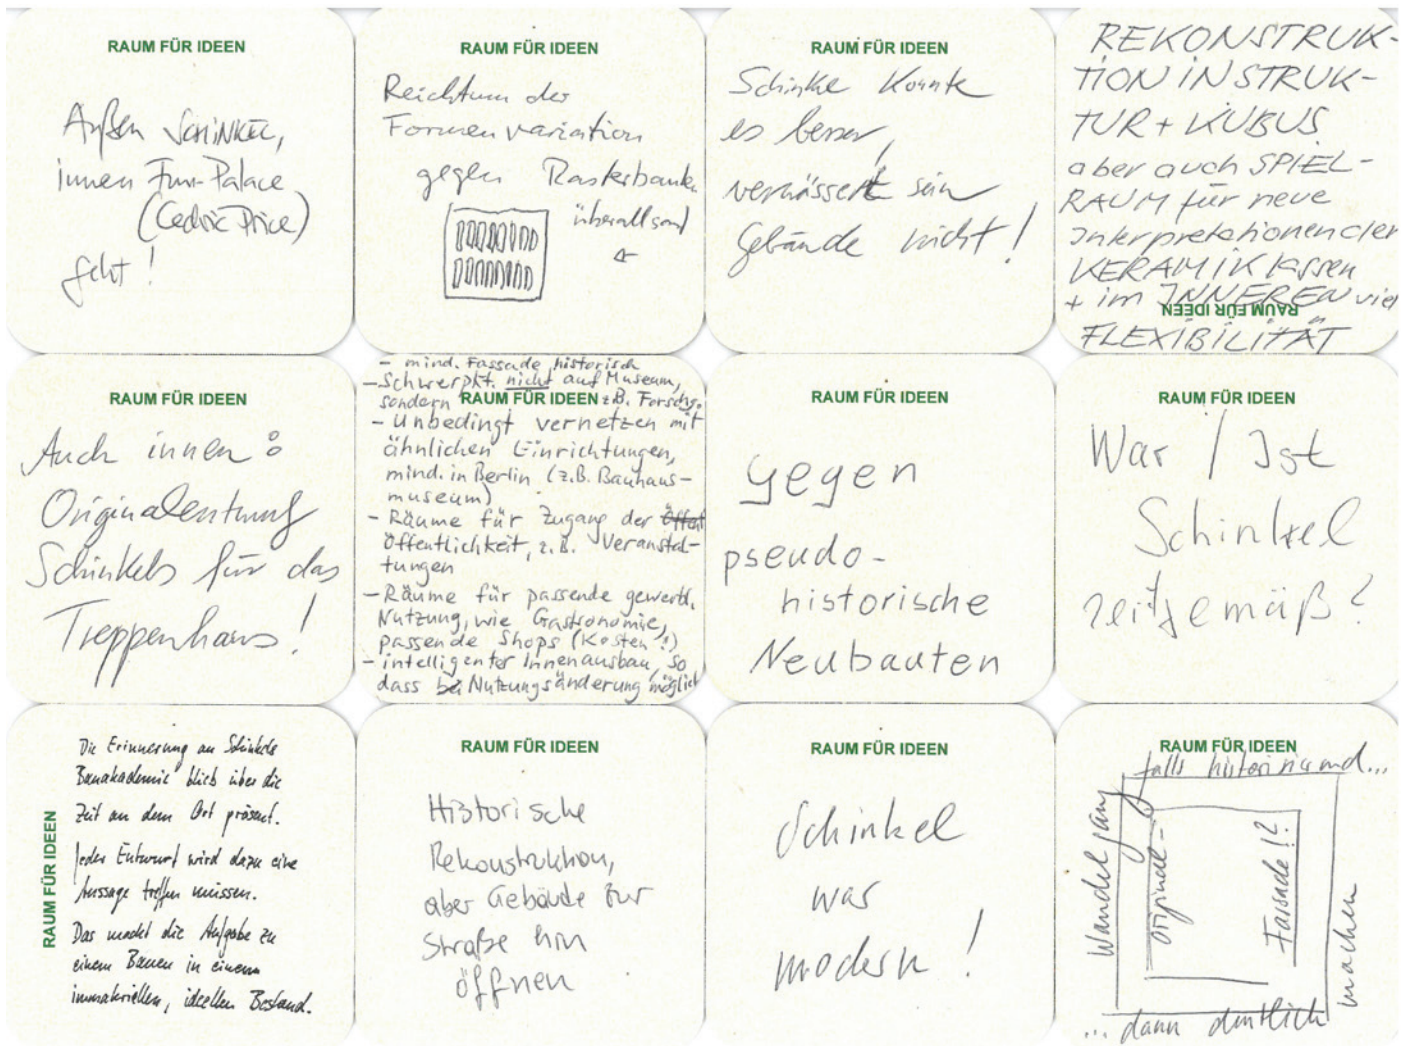 RAUM FÜR IDEEN
Außen SCHINKEL,
innen Fun-Palace
(Cedric Price)
geht!
RAUM FÜR IDEEN
Reichtum der
Formenvariation
gegen Rasterbauten
überall sonst
RAUM FÜR IDEEN
Schinkel konnte
es besser,
verwässert sein
Gebäude nicht!
REKONSTRUK-
TION IN STRUK-
TUR + KUBUS
aber auch SPIEL-
RAUM für neue
Interpretationen der
KERAMIK lassen
+ im INNEREN viel
RAUM FÜR IDEEN
FLEXIBILITÄT
RAUM FÜR IDEEN
Auch innen:
Originalentwurf
Schinkels für das
Treppenhaus!
- mind. Fassade historisch
- Schwerpkt. nicht auf Museum,
RAUM FÜR IDEEN
sondern z.B. Forschg.
- Unbedingt vernetzen mit
ähnlichen Einrichtungen,
mind. in Berlin (z.B. Bauhaus-
museum)
- Räume für Zugang der
Öffentlichkeit, z.B. Veranstal-
tungen
- Räume für passende gewerbl.
Nutzung, wie Gastronomie,
passende Shops (Kosten!)
- intelligenter Innenausbau, so
dass Nutzungsänderung möglich
RAUM FÜR IDEEN
gegen
pseudo-
historische
Neubauten
RAUM FÜR IDEEN
War / Ist
Schinkel
zeitgemäß?
RAUM FÜR IDEEN
Die Erinnerung an Schinkels
Bauakademie blieb über die
Zeit an dem Ort präsent.
Jeder Entwurf wird dazu eine
Aussage treffen müssen.
Das macht die Aufgabe zu
einem Bauen in einem
immateriellen, ideellen Bestand.
RAUM FÜR IDEEN
Historische
Rekonstruktion,
aber Gebäude zur
Straße hin
öffnen
RAUM FÜR IDEEN
Schinkel
war
modern!
RAUM FÜR IDEEN
falls historisierend...
Wandelgang
original-
Fassade!?
... dann deutlich
machen